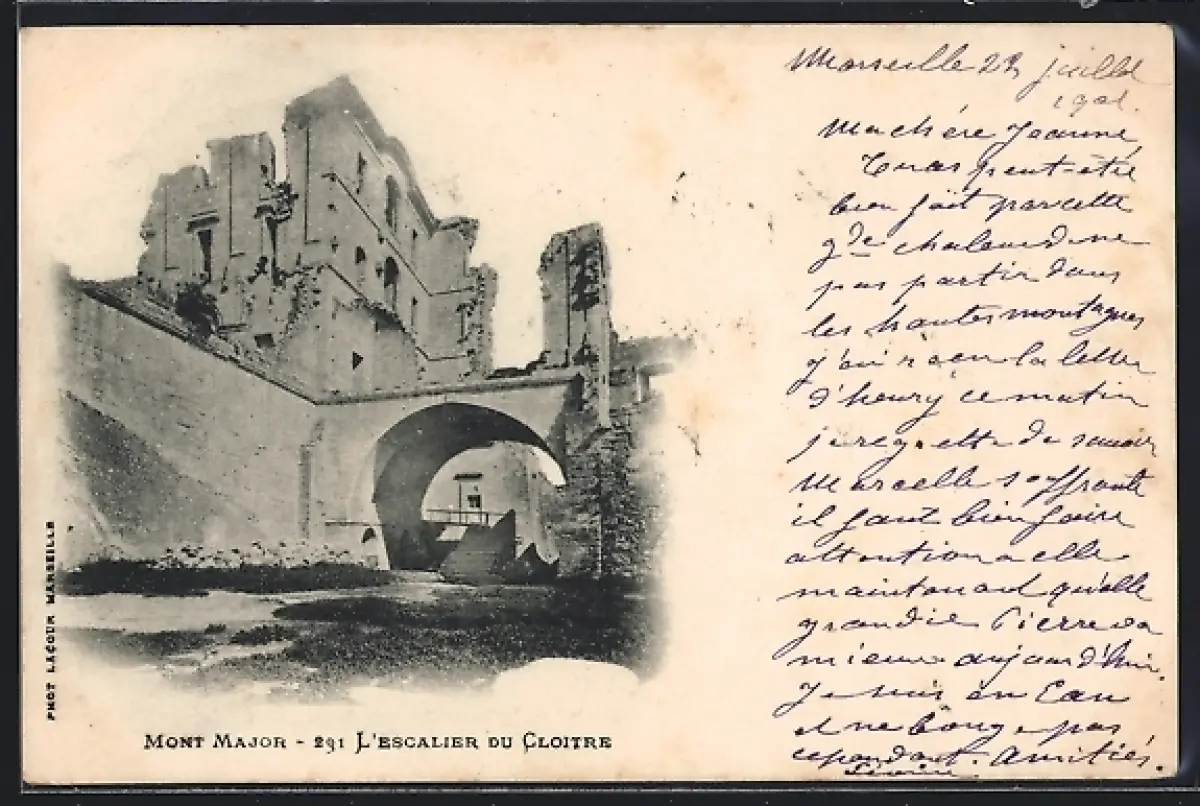 Marseille 22 juillet
1901.
Ma chère Jeanne,
Tu as peut-être
bien fait par cette
gde chaleur de ne
pas partir dans
les hautes montagnes
j'ai reçu la lettre
d'henry ce matin
je regrette de savoir
Marcelle souffrante
il faut bien faire
attention a elle
maintenant qu'elle
grandie Pierre va
mieux aujourd'hui.
Je suis en eau
et ne bouge pas
cependant. Amitiés.
MONT MAJOR - 291 L'ESCALIER DU CLOITRE
PHOT LACOUR MARSEILLE